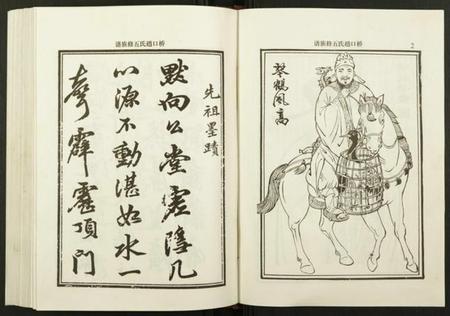 桥口趙氏五修族谱
2
琴鶴風高
桥口趙氏五修族谱
先祖墨蹟
默向公堂虛隱几
心源不動湛如水一
聲霹靂頂門